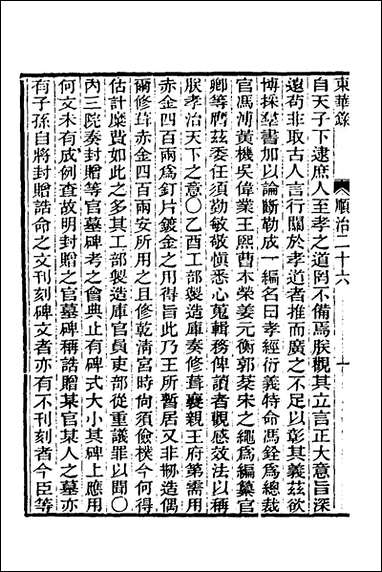 東華錄 順治二十六 十
自天子下逮庶人至孝之道罔不備焉朕觀其立言正大意旨深
遠苟非取古人言行關於孝道者推而廣之不足以彰其義茲欲
博採羣書加以論斷勒成一編名曰孝經衍義特命馮銓爲總裁
官馮溥黃機吳偉業王熙曹本榮姜元衡郭棻宋之繩爲編纂官
卿等膺茲委任須勤敏敬慎悉心蒐輯務俾讀者觀感效法以稱
朕孝治天下之意〇乙酉工部製造庫奏修葺襄親王府第需用
赤金四百兩爲釘片鍍金之用得旨此乃王所暫居又非剏造偶
爾修葺赤金四百兩安所用之且修乾清宮時尙須儉樸今何得
估計糜費如此之多其工部製造庫官員吏部從重議罪以聞〇
內三院奏封贈等官墓碑考之會典止有碑式大小其碑上應用
何文未有成例查故明封贈之官墓碑稱誥贈某官某人之墓亦
有子孫自將封贈誥命之文刊刻碑文者亦有不刊刻者今臣等